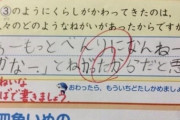 ③のようにくらしがかわってきたのは、
々のどのようなねがいがあったからですか
ーもっとべんりになんねー
かなー。」とねがったからだと思
ねいな
ばで書きましょう
おわったら、もういちどたしかめましょう